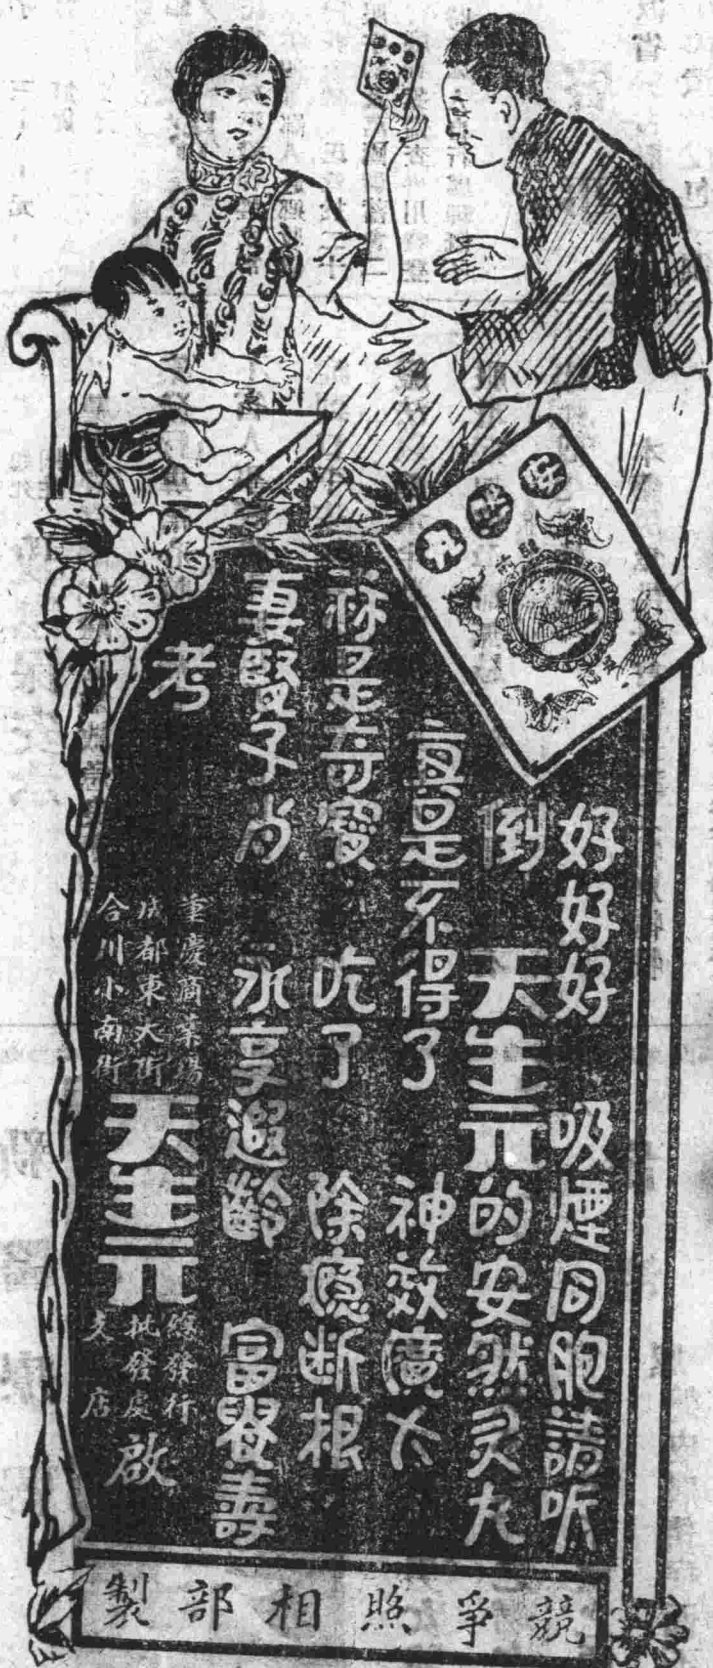 好好好 吸煙同胞請听
倒 天生元的安然灵丸
真是不得了 神效廣大
祢是奇寶 吃了 除癮断根
妻賢子肖 永享遐齡 富貴壽
考
重慶商業場
成都東大街
合川小南街
天生元
總發行
批發處
支店
啟
競爭照相部製